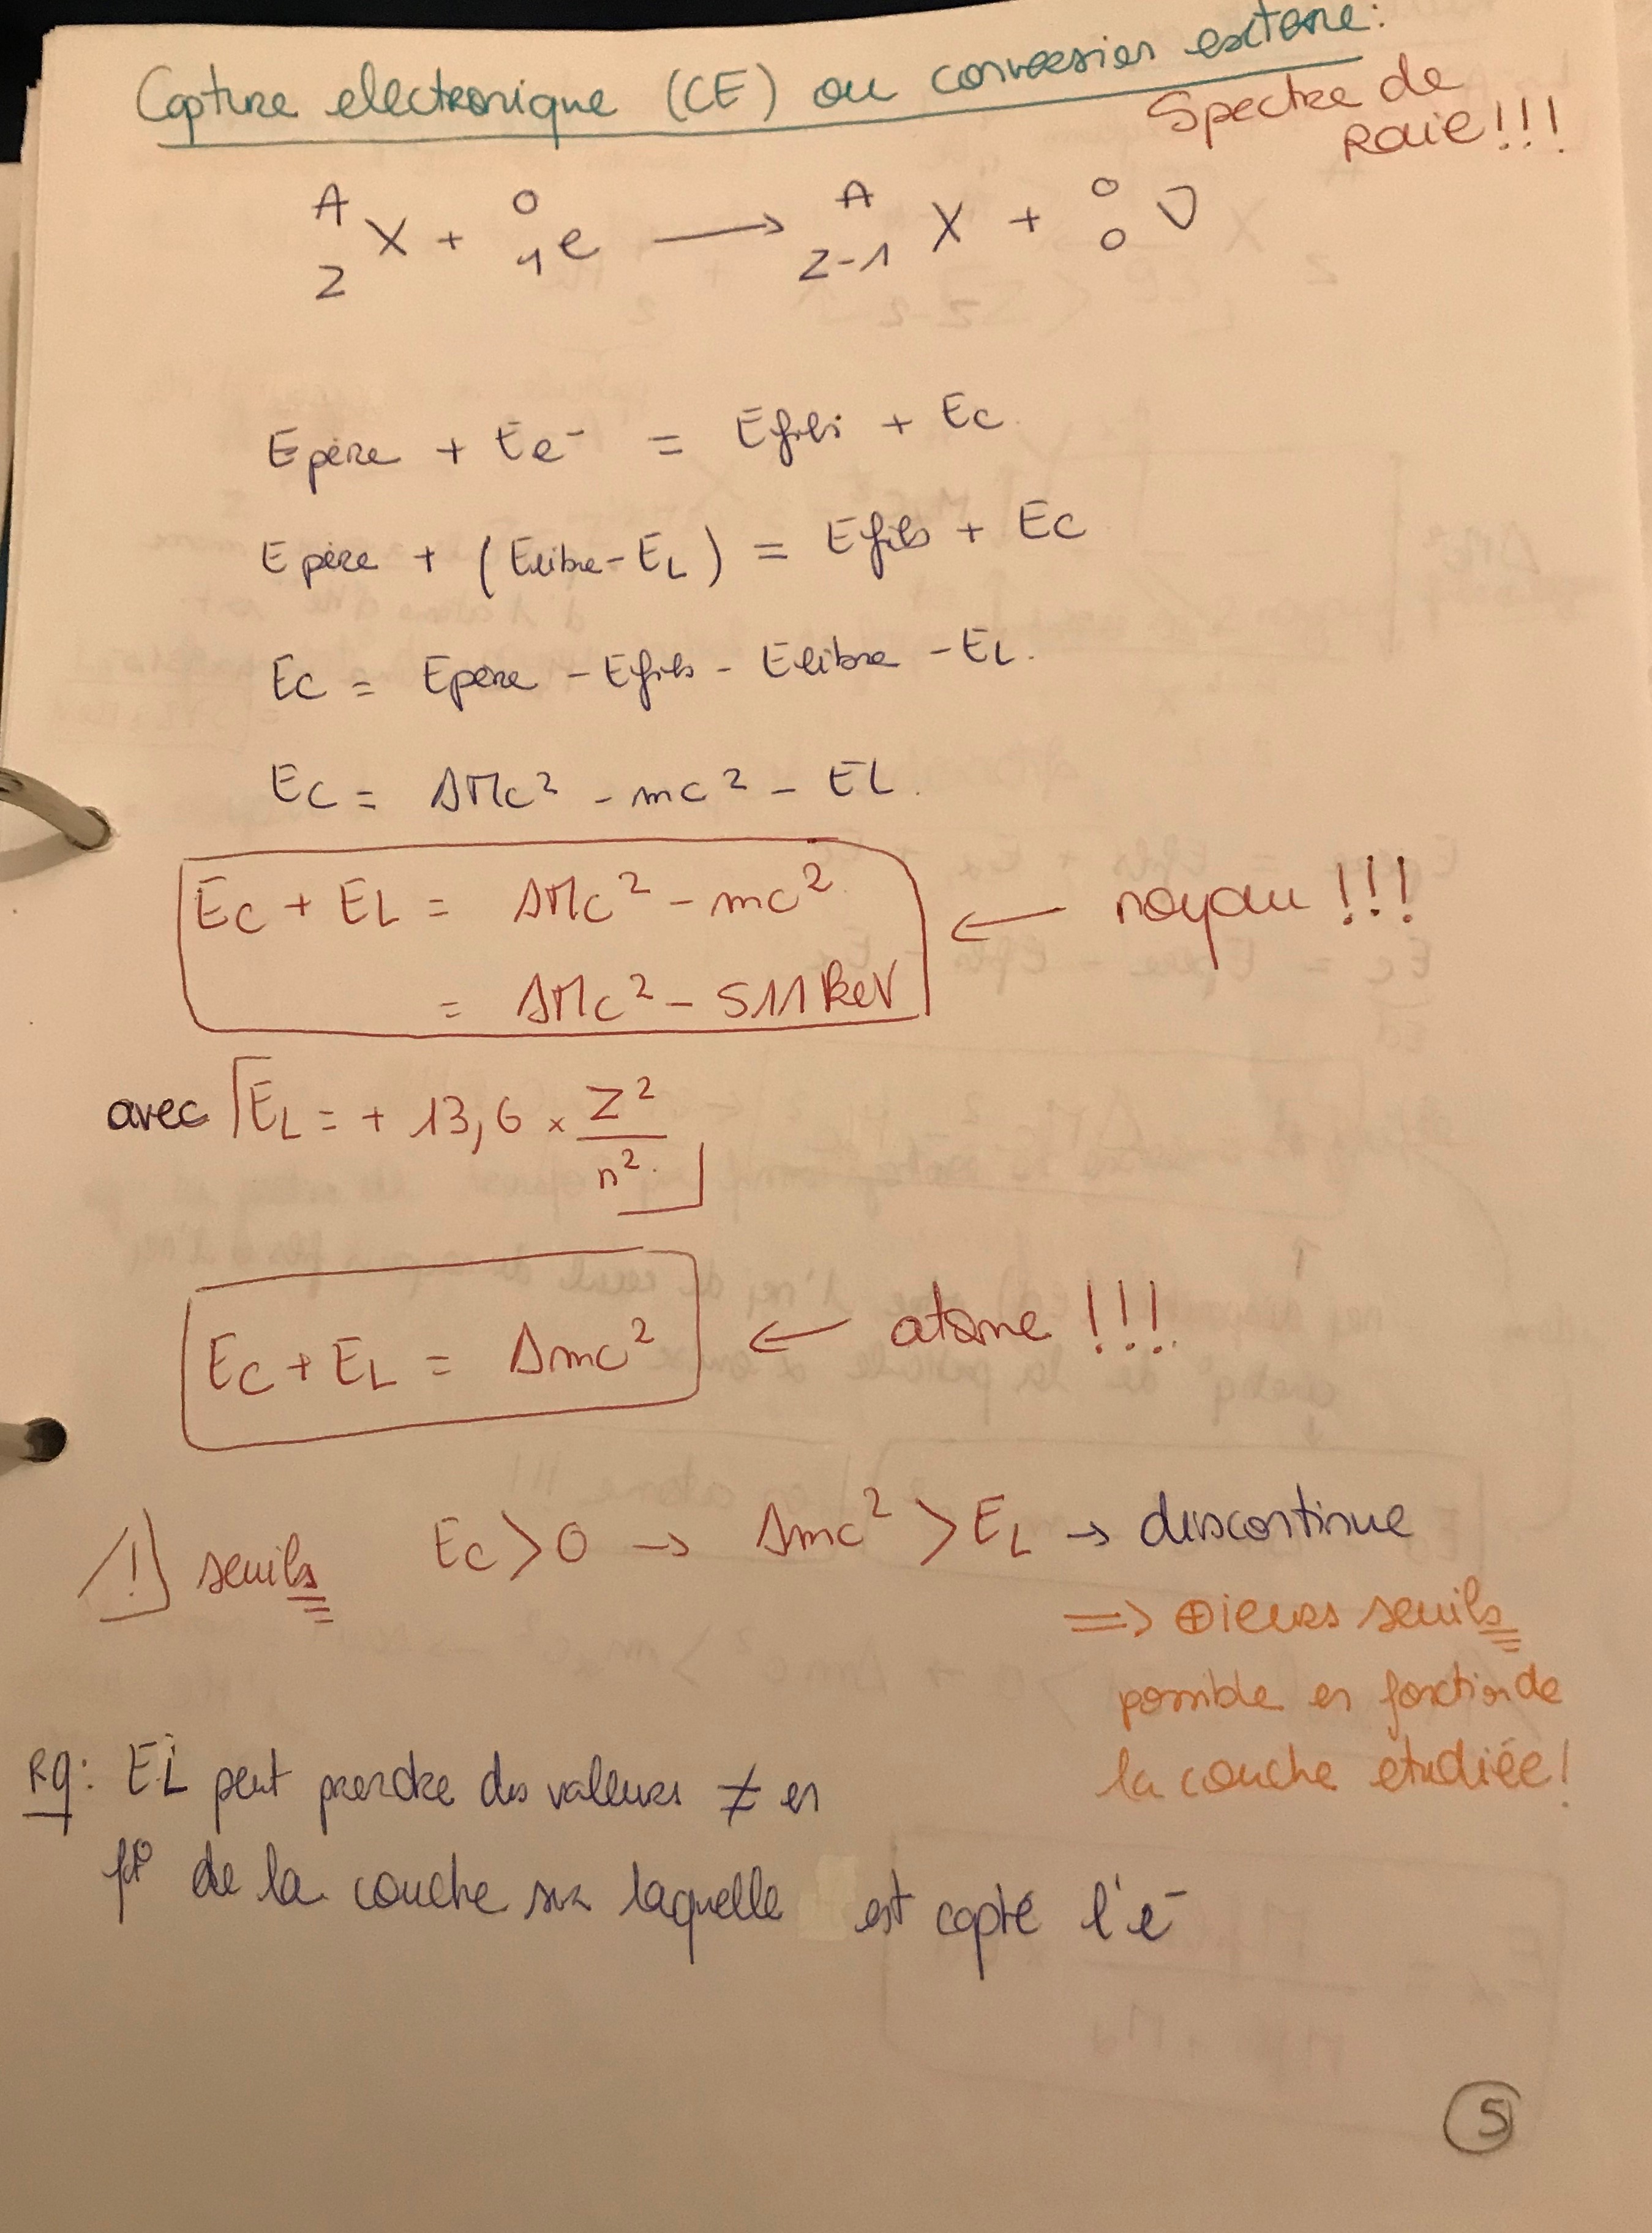 Capture electronique (CE) ou conversion externe :
Spectre de
Raie !!!
A 0 A 0
X + e → X + ν
Z 1 Z-1 0
Epère + Ee⁻ = Efils + Ec
Epère + (Elibre - EL) = Efils + Ec
Ec = Epère - Efils - Elibre - EL.
Ec = ΔMc² - mc² - EL.
Ec + EL = ΔMc² - mc² ← noyau !!!
= ΔMc² - 511 keV
avec EL = + 13,6 × Z²/n²
Ec + EL = Δmc² ← atome !!!
! seuils Ec > 0 → Δmc² > EL → discontinue
=> ⊕ieurs seuils
possible en fonction de
la couche etudiée !
Rq : EL peut prendre des valeurs ≠ en
f° de la couche sur laquelle est capté l'e⁻
5